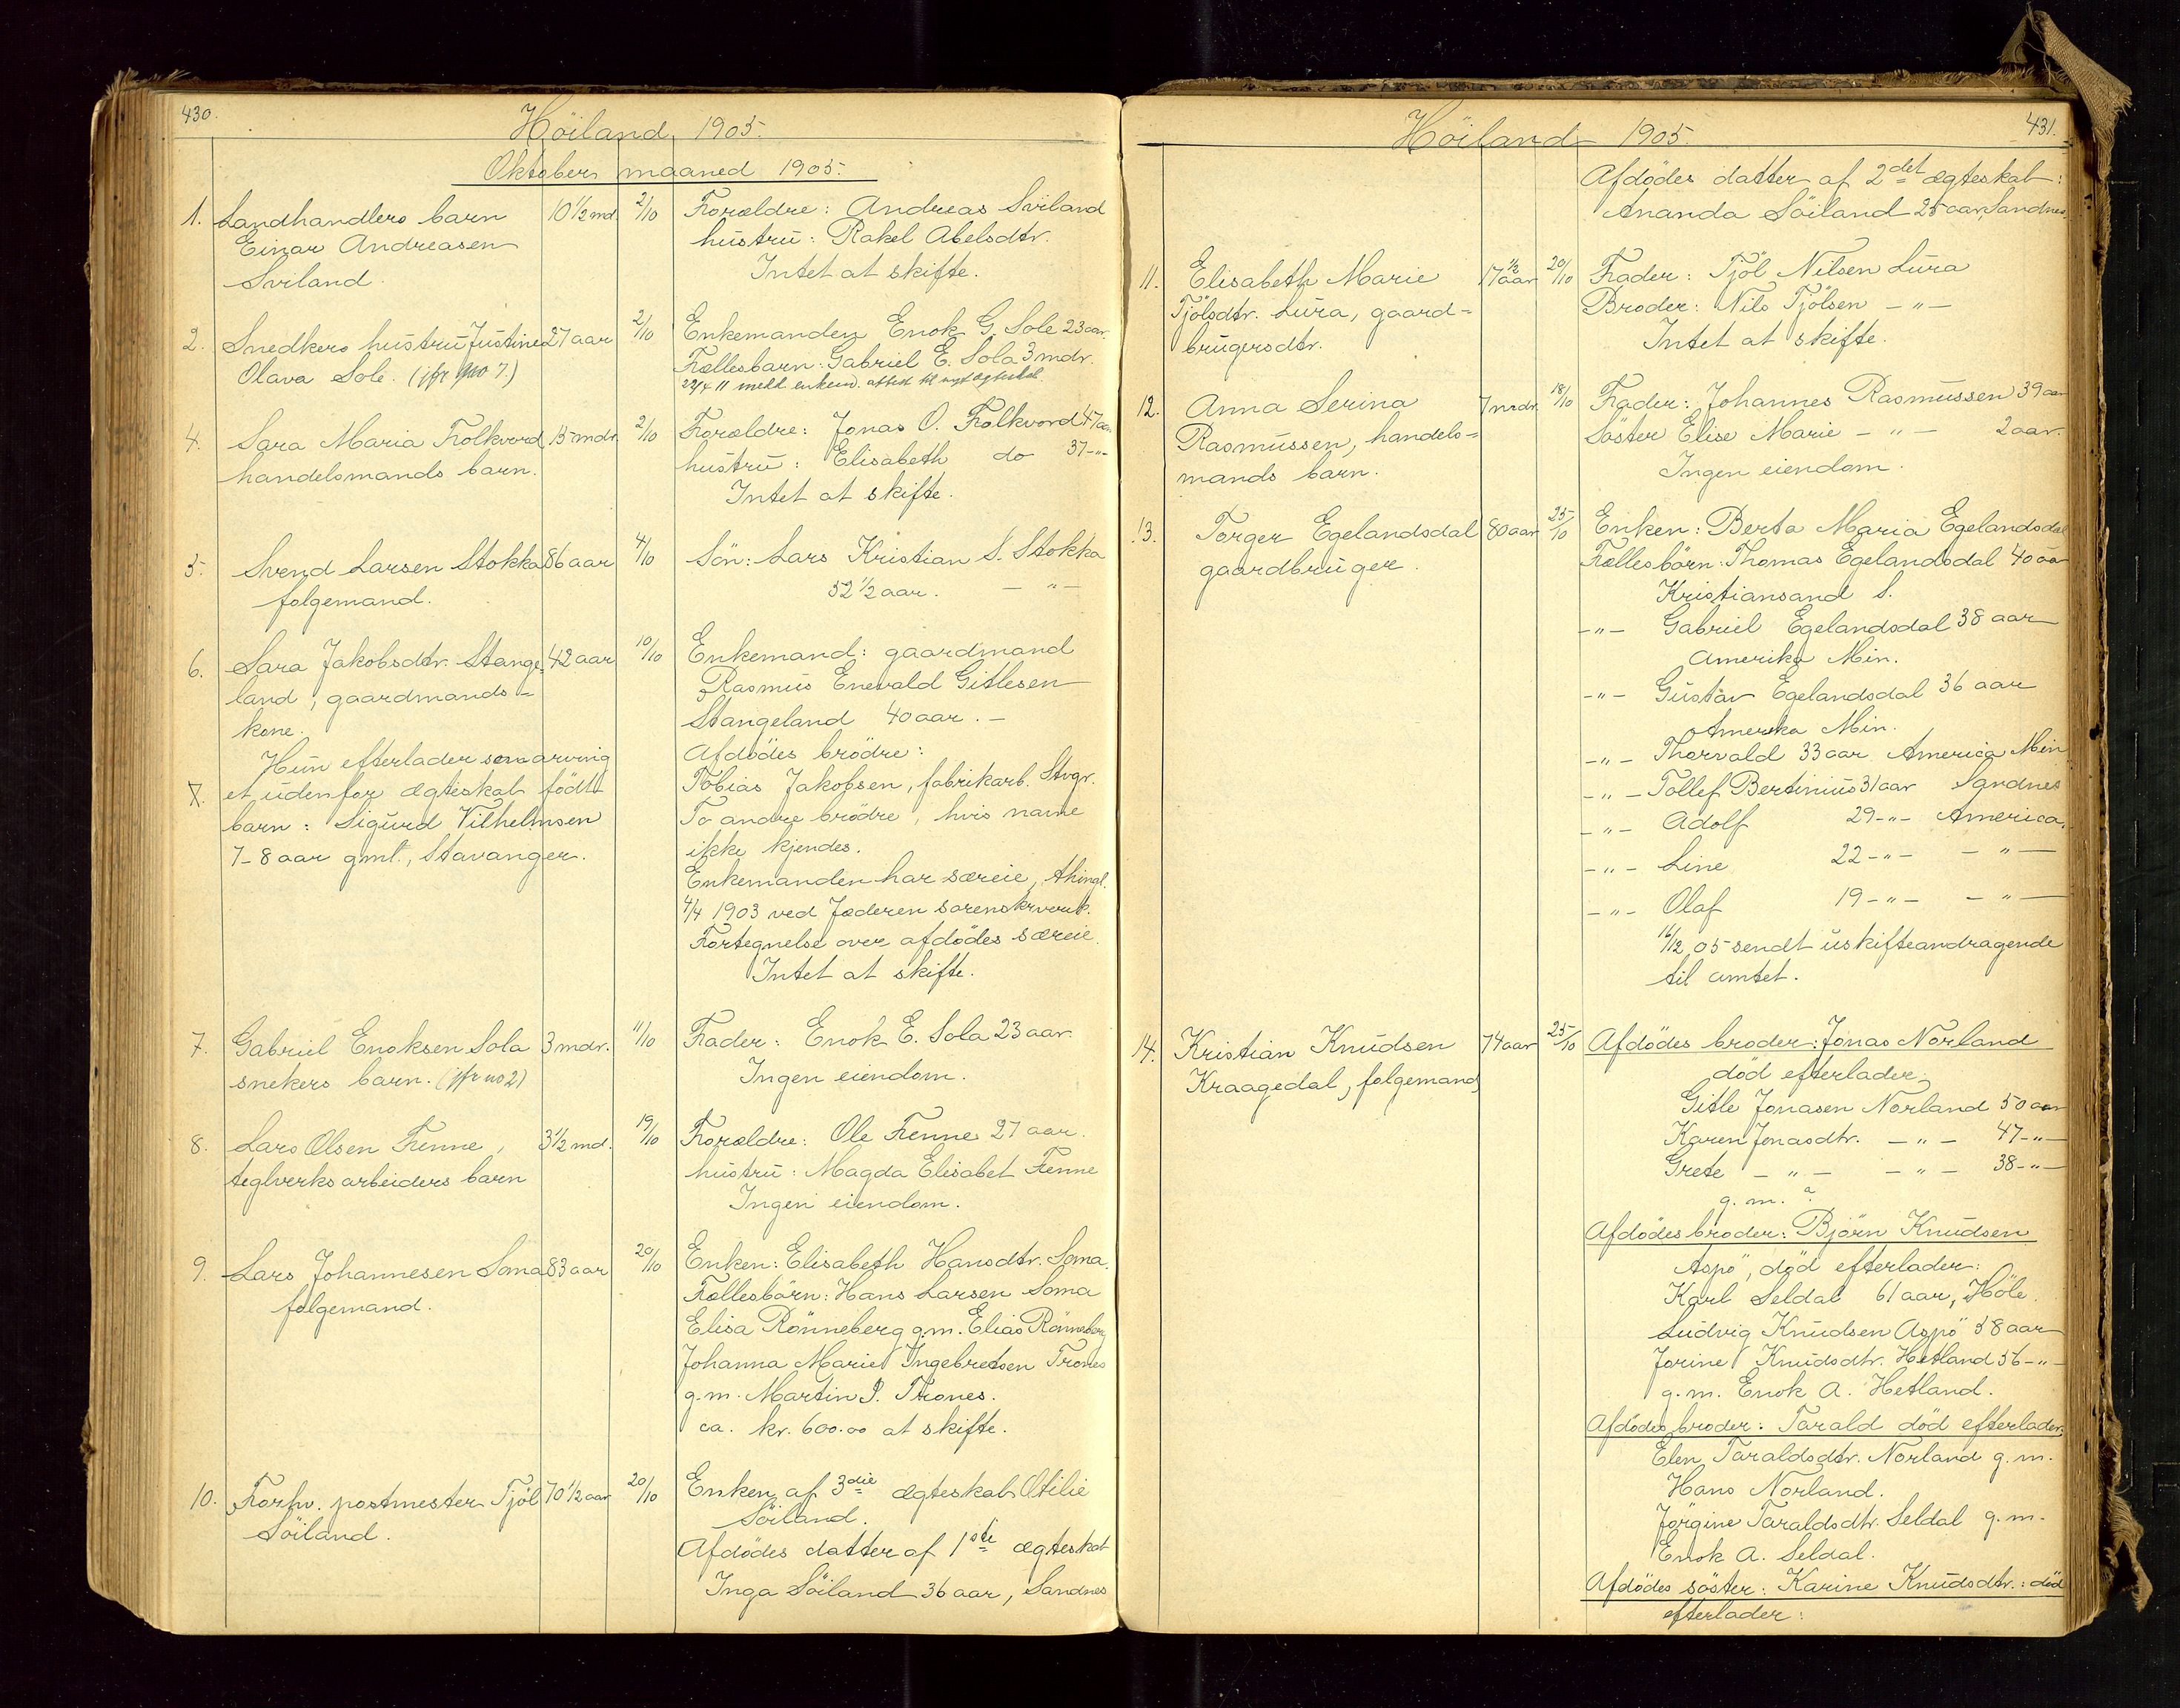 430.
Höiland 1905.
Oktober maaned 1905.
1. Landhandlers barn 10 1/2 md. 2/10 Forældre: Andreas Sviland
Einar Andreasen hustru: Rakel Abelsdtr.
Sviland. Intet at skifte.
2. Snedkers hustru Justine 27 aar 2/10 Enkemanden Enok G. Sole 23 aar.
Olava Sole. (jfr no 7.) Fællesbarn: Gabriel E. Sola 3 mdr.
22/4 11 meld. enkem. attest til nyt ægteskab
4. Sara Maria Folkvord 15 mdr. 2/10 Forældre: Jonas O. Folkvord 47 aar
handelsmands barn. hustru: Elisabeth do 37 -"-
Intet at skifte.
5. Svend Larsen Stokka 86 aar 4/10 Sön: Lars Kristian S. Stokka
folgemand. 52 1/2 aar. - " -
6. Sara Jakobsdtr. Stange- 42 aar 10/10 Enkemand: gaardmand
land, gaardmands- Rasmus Enevald Gitlesen
kone. Stangeland 40 aar. -
Hun efterlader som arving Afdödes brödre:
7. et udenfor ægteskab födt Tobias Jakobsen, fabrikarb. Stvgr.
barn: Sigurd Vilhelmsen To andre brödre, hvis navne
7-8 aar gml., Stavanger. ikke kjendes.
Enkemanden har særeie, thingl.
4/4 1903 ved Jæderen sorenskrverik.
Fortegnelse over afdödes særeie.
Intet at skifte.
7. Gabriel Enoksen Sola 3 mdr. 11/10 Fader: Enok E. Sola 23 aar.
snekers barn. (jfr no 2) Ingen eiendom.
8. Lars Olsen Fenne, 3 1/2 md. 19/10 Forældre: Ole Fenne 27 aar.
teglverksarbeiders barn hustru: Magda Elisabet Fenne
Ingen eiendom.
9. Lars Johannesen Soma 83 aar 20/10 Enken: Elisabeth Hansdtr. Soma.
folgemand. Fællesbörn: Hans Larsen Soma
Elisa Rönneberg g.m. Elias Rönneberg
Johanna Marie Ingebretsen Trones
g.m. Martin I. Trones.
ca. kr. 600.00 at skifte.
10. Forhv. postmester Tjöl 70 1/2 aar 20/10 Enken af 3die ægteskab Otilie
Söiland. Söiland.
Afdödes datter af 1ste ægteskab
Inga Söiland 36 aar, Sandnes
Höiland 1905.
431.
Afdödes datter af 2det ægteskab:
Ananda Söiland 25 aar, Sandnes.
11. Elisabeth Marie 17 1/2 aar 20/10 Fader: Tjöl Nilsen Lura
Tjölsdtr. Lura, gaard- Broder: Nils Tjölsen - " -
brugersdtr. Intet at skifte.
12. Anna Serina 7 mdr. 18/10 Fader: Johannes Rasmussen 39 aar
Rasmussen, handels- Söster Elise Marie - " - 2 aar.
mands barn. Ingen eiendom.
13. Torger Egelandsdal 80 aar 25/10 Enken: Berta Maria Egelandsdal
gaardbruger. Fællesbörn: Thomas Egelandsdal 40 aar
Kristiansand S.
-"- Gabriel Egelandsdal 38 aar
Amerika Min.
-"- Gustav Egelandsdal 36 aar
Amerika Min.
-"- Thorvald 33 aar America Min
-"- Tollef Bertinius 31 aar Sandnes
-"- Adolf 29 -"- America.
-"- Line 22 -"- - " -
-"- Olaf 19 -"- - " -
16/12 05 sendt uskifteandragende
til amtet.
14. Kristian Knudsen 74 aar 25/10 Afdödes broder: Jonas Norland
Kraagedal, folgemand död efterlader
Gitle Jonasen Norland 50 aar
Karen Jonasdtr. - " - 47 -"-
Grete - " - - " - 38 -"-
g. m. ?
Afdödes broder: Björn Knudsen
Aspö, död efterlader:
Karl Seldal 61 aar, Höle.
Ludvig Knudsen Aspö 58 aar
Jorine Knudsdtr. Hetland 56 -"-
g.m. Enok A. Hetland.
Afdödes broder: Tarald död efterlader:
Elen Taraldsdtr. Norland g.m.
Hans Norland.
Jörgine Taraldsdtr. Seldal g.m.
Enok A. Seldal.
Afdödes söster: Karine Knudsdtr.: död
efterlader: